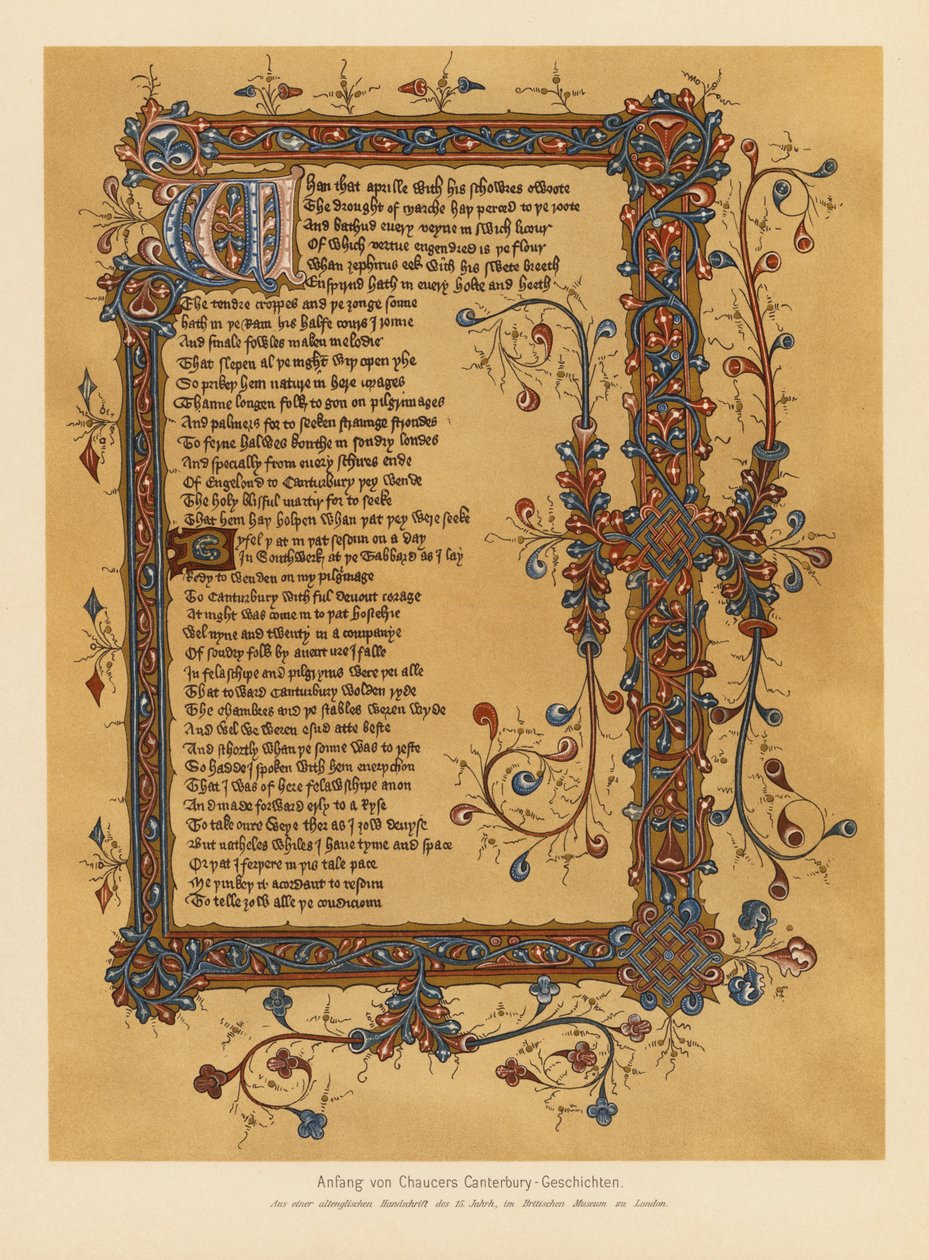 Whan that aprille with his schowres swoote
The drought of marche hay perced to ye roote
And bathud euery veyne in swich licour
Of which vertue engendred is ye flour
Whan zephirus eek with his swete breeth
Enspirud hath in euery holte and heeth
The tendre croppes and ye zonge sonne
hath in ye Ram his halfe cours I ronne
And smale fowles maken melodie
That slepen al ye night wiy open yhe
So prikey hem nature in here corages
Thanne longen folk to gon on pilgrimages
And palmers for to seeken straunge strondes
To ferne halwes kouthe in sondry londes
And specially from euery schires ende
Of Engelond to Canturbury yey wende
The holy blisful martir for to seeke
That hem hay holpen whan yat yey were seeke
Byfel y at in yat sesoun on a day
In Southwerk at ye Tabbard as I lay
Redy to wenden on my pilgrimage
To Canturbury with ful deuout corage
At night was come in to yat hostelrie
Wel nyne and twenty in a companye
Of sondry folk by auenture I falle
In felaschipe and pilgryms were yei alle
That to ward Canturbury wolden ryde
The chambres and ye stables weren wyde
And wel we weren esud atte beste
And schortly whan ye sonne was to reste
So hadde I spoken with hem euerychon
That I was of here felawschipe anon
And made forward erly to a ryse
To take oure weye ther as I zow deuyse
But natheles whiles I haue tyme and space
Or yat I feryere in yis tale pace
Me yinkey it acordaut to resoun
To telle zow alle ye condicioun
Anfang von Chaucers Canterbury-Geschichten.
Aus einer altenglischen Handschrift des 15. Jahrh., im Britischen Museum zu London.